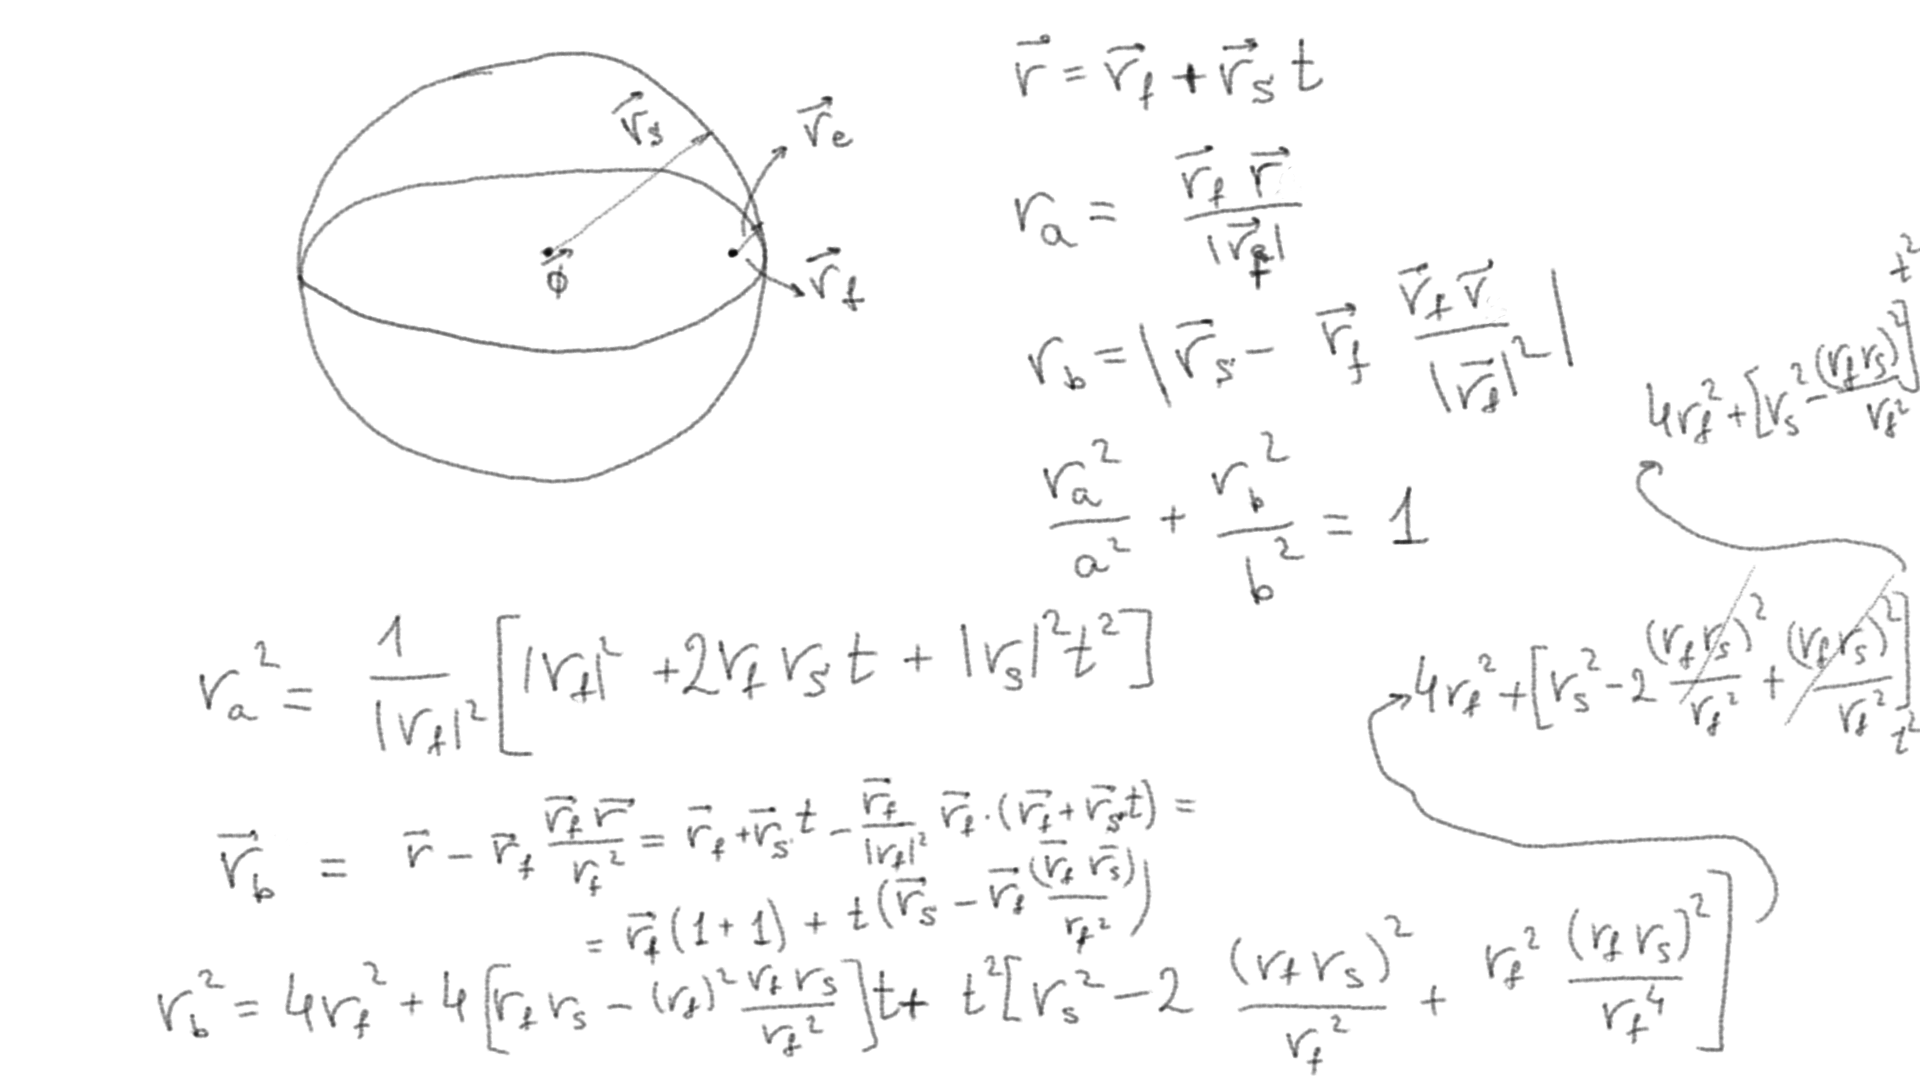 r⃗ = r⃗_f + r⃗_s t
r⃗_s
r⃗_e
0⃗
r⃗_f
r_a = (r⃗_f r⃗) / |r⃗_f|
r_b = | r⃗_s − r⃗_f (r⃗_f r⃗) / |r⃗_f|² |
r_a² / a² + r_b² / b² = 1
4r_f² + [r_s² − (r_f r_s)² / r_f²] t²
r_a² = 1 / |r_f|² [ |r_f|² + 2 r_f r_s t + |r_s|² t² ]
4r_f² + [r_s² − 2 (r_f r_s)² / r_f² + (r_f r_s)² / r_f²] t²
r⃗_b = r⃗ − r⃗_f (r⃗_f r⃗) / r_f² = r⃗_f + r⃗_s t − r⃗_f / |r_f|² r⃗_f · (r⃗_f + r⃗_s t) =
= r⃗_f (1 + 1) + t (r⃗_s − r⃗_f (r⃗_f r⃗_s) / r_f²)
r_b² = 4r_f² + 4 [r_f r_s − (r_f)² r_f r_s / r_f²] t + t² [r_s² − 2 (r_f r_s)² / r_f² + r_f² (r_f r_s)² / r_f⁴]